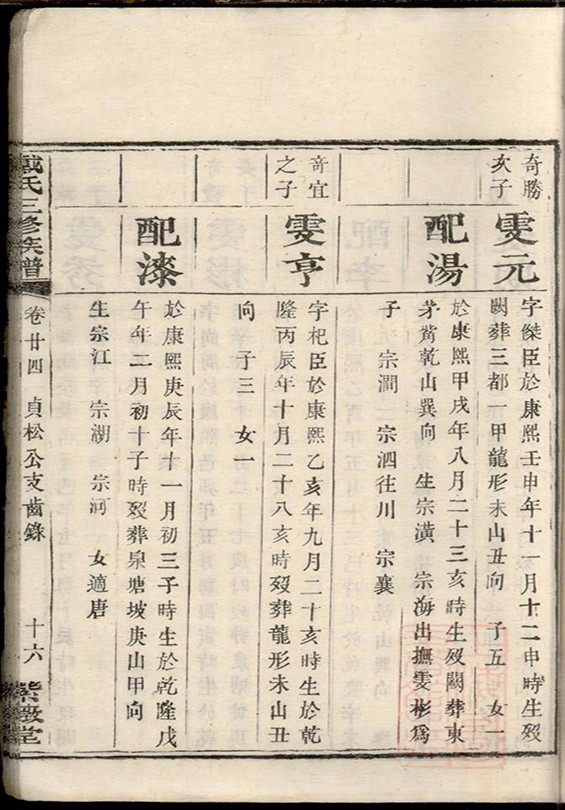 奇勝
次子
雯元
字傑臣於康熙壬申年十一月十二申時生歿
闕葬三都一甲龍形未山丑向 子五 女一
配湯
於康熙甲戌年八月二十三亥時生歿闕葬東
茅觜乾山巽向 生宗潢 宗海出撫雯彬為
子 宗澗 宗泗往川 宗襄
奇宜
之子
雯亨
字祀臣於康熙乙亥年九月二十亥時生於乾
隆丙辰年十月二十八亥時歿葬龍形未山丑
向 子三 女一
配漆
於康熙庚辰年十一月初三子時生於乾隆戊
午年二月初十子時歿葬泉塘坡庚山甲向
生宗江 宗湖 宗河 女適唐
戴氏三修族譜
卷廿四 貞松公支齒錄
十六
紫敬堂